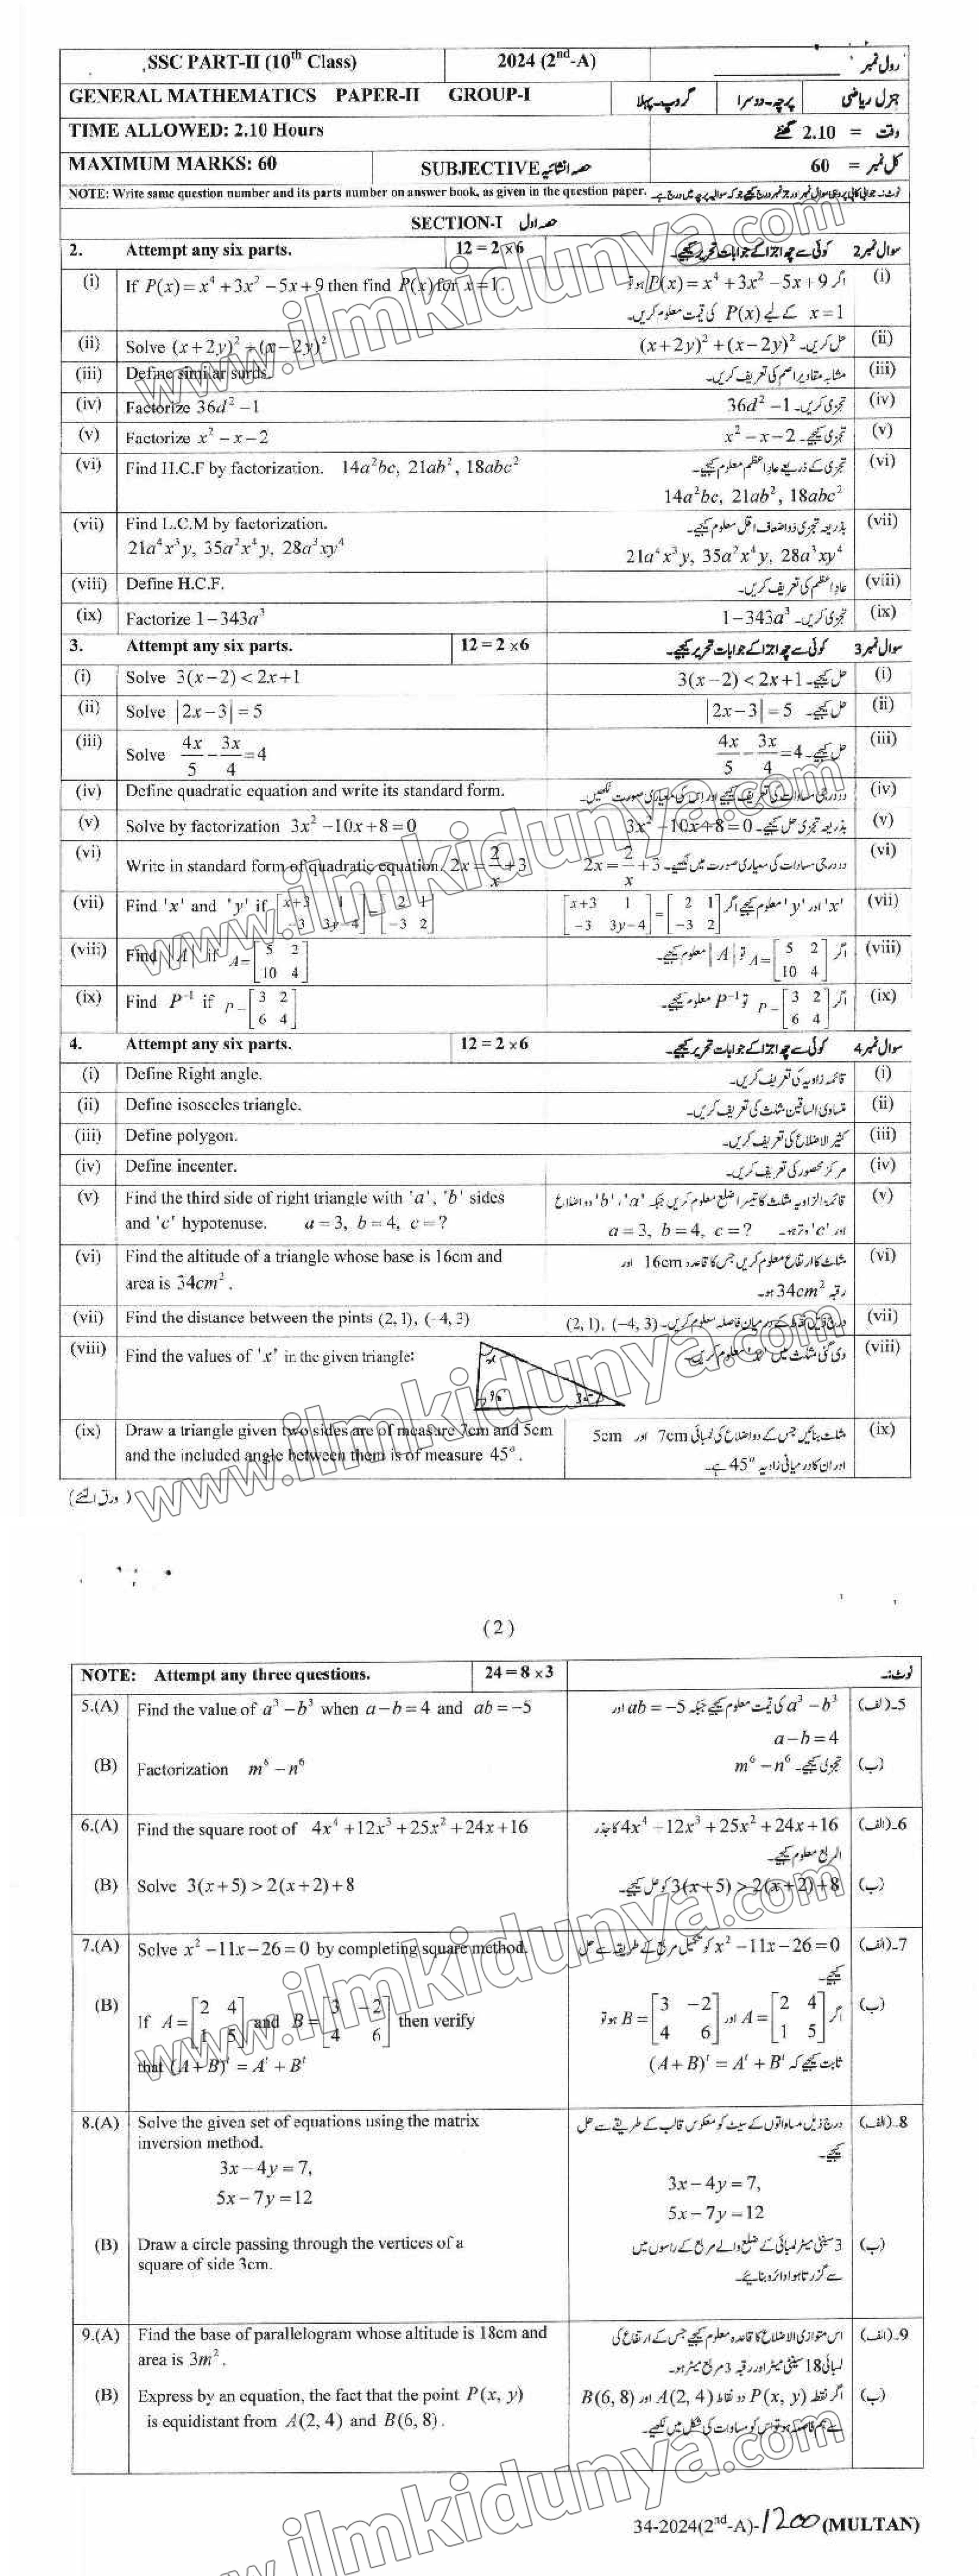 SSC PART-II (10th Class) 2024 (2nd-A) رول نمبر
GENERAL MATHEMATICS PAPER-II GROUP-I گروپ-پہلا پرچہ-دوسرا جنرل ریاضی
TIME ALLOWED: 2.10 Hours وقت = 2.10 گھنٹے
MAXIMUM MARKS: 60 SUBJECTIVE حصہ انشائیہ کل نمبر = 60
NOTE: Write same question number and its parts number on answer book, as given in the question paper.
SECTION-I حصہ اول
2. Attempt any six parts. 12 = 2 x 6 کوئی سے چھ اجزا کے جوابات تحریر کیجئے۔ سوال نمبر 2
(i) If P(x) = x⁴ + 3x² − 5x + 9 then find P(x) for x = 1. اگر P(x) = x⁴ + 3x² − 5x + 9 ہو تو (i)
x = 1 کے لیے P(x) کی قیمت معلوم کریں۔
(ii) Solve (x + 2y)² + (x − 2y)² حل کریں۔ (x + 2y)² + (x − 2y)² (ii)
(iii) Define similar surds. مشابہ مقادیر اصم کی تعریف کریں۔ (iii)
(iv) Factorize 36d² − 1 تجزی کریں۔ 36d² − 1 (iv)
(v) Factorize x² − x − 2 تجزی کیجئے۔ x² − x − 2 (v)
(vi) Find H.C.F by factorization. 14a²bc, 21ab², 18abc² تجزی کے ذریعے عاد اعظم معلوم کیجئے۔ (vi)
14a²bc, 21ab², 18abc²
(vii) Find L.C.M by factorization. بذریعہ تجزی ذواضعاف اقل معلوم کیجئے۔ (vii)
21a⁴x³y, 35a²x⁴y, 28a³xy⁴ 21a⁴x³y, 35a²x⁴y, 28a³xy⁴
(viii) Define H.C.F. عاد اعظم کی تعریف کریں۔ (viii)
(ix) Factorize 1 − 343a³ تجزی کریں۔ 1 − 343a³ (ix)
3. Attempt any six parts. 12 = 2 x 6 کوئی سے چھ اجزا کے جوابات تحریر کیجئے۔ سوال نمبر 3
(i) Solve 3(x − 2) < 2x + 1 حل کیجئے۔ 3(x − 2) < 2x + 1 (i)
(ii) Solve |2x − 3| = 5 حل کیجئے۔ |2x − 3| = 5 (ii)
(iii) Solve 4x/5 − 3x/4 = 4 حل کیجئے۔ 4x/5 − 3x/4 = 4 (iii)
(iv) Define quadratic equation and write its standard form. دو درجی مساوات کی تعریف کیجئے اور اس کی معیاری صورت لکھیں۔ (iv)
(v) Solve by factorization 3x² − 10x + 8 = 0 بذریعہ تجزی حل کیجئے۔ 3x² − 10x + 8 = 0 (v)
(vi) Write in standard form of quadratic equation. 2x = 2/x + 3 دو درجی مساوات کی معیاری صورت میں لکھیے۔ 2x = 2/x + 3 (vi)
(vii) Find 'x' and 'y' if [x+3 1; −3 3y−4] = [2 1; −3 2] 'x' اور 'y' معلوم کیجئے اگر [x+3 1; −3 3y−4] = [2 1; −3 2] (vii)
(viii) Find |A| if A = [5 2; 10 4] اگر A = [5 2; 10 4] تو |A| معلوم کیجئے۔ (viii)
(ix) Find P⁻¹ if P = [3 2; 6 4] اگر P = [3 2; 6 4] تو P⁻¹ معلوم کیجئے۔ (ix)
4. Attempt any six parts. 12 = 2 x 6 کوئی سے چھ اجزا کے جوابات تحریر کیجئے۔ سوال نمبر 4
(i) Define Right angle. قائمہ زاویہ کی تعریف کریں۔ (i)
(ii) Define isosceles triangle. متساوی الساقین مثلث کی تعریف کریں۔ (ii)
(iii) Define polygon. کثیر الاضلاع کی تعریف کریں۔ (iii)
(iv) Define incenter. مرکز محصور کی تعریف کریں۔ (iv)
(v) Find the third side of right triangle with 'a', 'b' sides قائمۃ الزاویہ مثلث کا تیسرا ضلع معلوم کریں جبکہ 'a'، 'b' دو اضلاع (v)
and 'c' hypotenuse. a = 3, b = 4, c = ? اور 'c' وتر ہو۔ a = 3, b = 4, c = ?
(vi) Find the altitude of a triangle whose base is 16cm and مثلث کا ارتفاع معلوم کریں جس کا قاعدہ 16cm اور (vi)
area is 34cm². رقبہ 34cm² ہو۔
(vii) Find the distance between the pints (2, 1), (−4, 3) درج ذیل نقاط کے درمیان فاصلہ معلوم کریں۔ (2, 1), (−4, 3) (vii)
(viii) Find the values of 'x' in the given triangle: دی گئی مثلث میں 'x' معلوم کریں۔ (viii)
x
(ix) Draw a triangle given two sides are of measure 7cm and 5cm مثلث بنائیں جس کے دو اضلاع کی لمبائی 7cm اور 5cm (ix)
and the included angle between them is of measure 45°. اور ان کا درمیانی زاویہ 45° ہے۔
(ورق الٹئے)
(2)
NOTE: Attempt any three questions. 24 = 8 x 3 نوٹ:۔
5.(A) Find the value of a³ − b³ when a − b = 4 and ab = −5 a³ − b³ کی قیمت معلوم کیجئے جبکہ ab = −5 اور 5۔(الف)
a − b = 4
(B) Factorization m⁶ − n⁶ تجزی کیجئے۔ m⁶ − n⁶ (ب)
6.(A) Find the square root of 4x⁴ + 12x³ + 25x² + 24x + 16 4x⁴ + 12x³ + 25x² + 24x + 16 کا جذر 6۔(الف)
المربع معلوم کیجئے۔
(B) Solve 3(x + 5) > 2(x + 2) + 8 3(x + 5) > 2(x + 2) + 8 کو حل کیجئے۔ (ب)
7.(A) Solve x² − 11x − 26 = 0 by completing square method. x² − 11x − 26 = 0 کو تکمیل مربع کے طریقے سے حل 7۔(الف)
کیجئے۔
(B) If A = [2 4; 1 5] and B = [3 −2; 4 6] then verify اگر A = [2 4; 1 5] اور B = [3 −2; 4 6] ہو تو (ب)
that (A + B)ᵗ = Aᵗ + Bᵗ ثابت کیجئے کہ (A + B)ᵗ = Aᵗ + Bᵗ
8.(A) Solve the given set of equations using the matrix درج ذیل مساواتوں کے سیٹ کو معکوس قالب کے طریقے سے حل 8۔(الف)
inversion method. کیجئے۔
3x − 4y = 7, 3x − 4y = 7,
5x − 7y = 12 5x − 7y = 12
(B) Draw a circle passing through the vertices of a 3 سینٹی میٹر لمبائی کے ضلع والے مربع کے راسوں میں (ب)
square of side 3cm. سے گزرتا ہوا دائرہ بنایئے۔
9.(A) Find the base of parallelogram whose altitude is 18cm and اس متوازی الاضلاع کا قاعدہ معلوم کیجئے جس کے ارتفاع کی 9۔(الف)
area is 3m². لمبائی 18 سینٹی میٹر اور رقبہ 3 مربع میٹر ہو۔
(B) Express by an equation, the fact that the point P(x, y) اگر نقطہ P(x, y) دو نقاط A(2, 4) اور B(6, 8) (ب)
is equidistant from A(2, 4) and B(6, 8). سے ہم فاصلہ ہو تو اس کو مساوات کی شکل میں لکھیے۔
34-2024(2nd-A)-1200 (MULTAN)
www.ilmkidunya.com
www.ilmkidunya.com
www.ilmkidunya.com
www.ilmkidunya.com